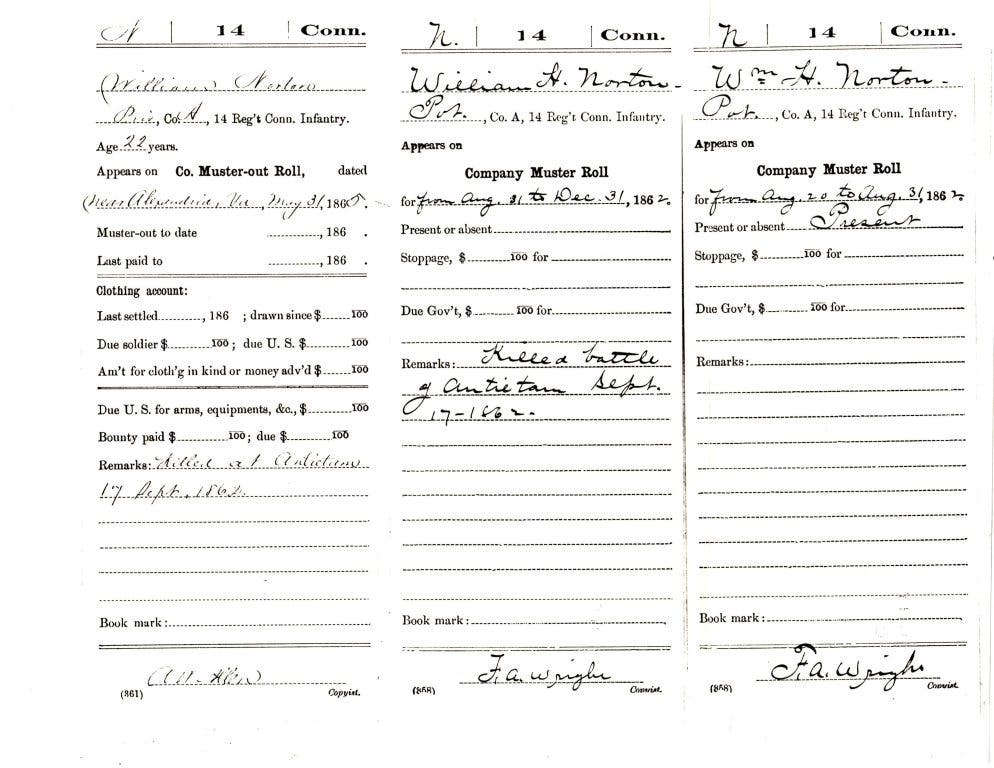 N | 14 | Conn.
William Norton
Priv, Co. A, 14 Reg't Conn. Infantry.
Age 22 years.
Appears on Co. Muster-out Roll, dated
Near Alexandria, Va, May 31, 1865.
Muster-out to date ............, 186 .
Last paid to ............, 186 .
Clothing account:
Last settled .........., 186 ; drawn since $ ...... 100
Due soldier $ .......... 100 ; due U. S. $ .......... 100
Am't for cloth'g in kind or money adv'd $ ...... 100
Due U. S. for arms, equipments, &c., $ .......... 100
Bounty paid $ .......... 100 ; due $ .......... 100
Remarks: Killed at Antietam
17 Sept. 1862.
Book mark:
(361) Copyist.
N. | 14 | Conn.
William H. Norton -
Pvt., Co. A, 14 Reg't Conn. Infantry.
Appears on
Company Muster Roll
for from Aug. 31 to Dec. 31, 1862.
Present or absent
Stoppage, $ .......... 100 for
Due Gov't, $ .......... 100 for
Remarks: Killed battle
of Antietam Sept.
17-1862.
Book mark:
F. A. Wright
(858) Copyist.
N | 14 | Conn.
Wm H. Norton -
Pvt., Co. A, 14 Reg't Conn. Infantry.
Appears on
Company Muster Roll
for from Aug. 20 to Aug. 31, 1862.
Present or absent Present
Stoppage, $ .......... 100 for
Due Gov't, $ .......... 100 for
Remarks:
Book mark:
F. A. Wright
(858) Copyist.